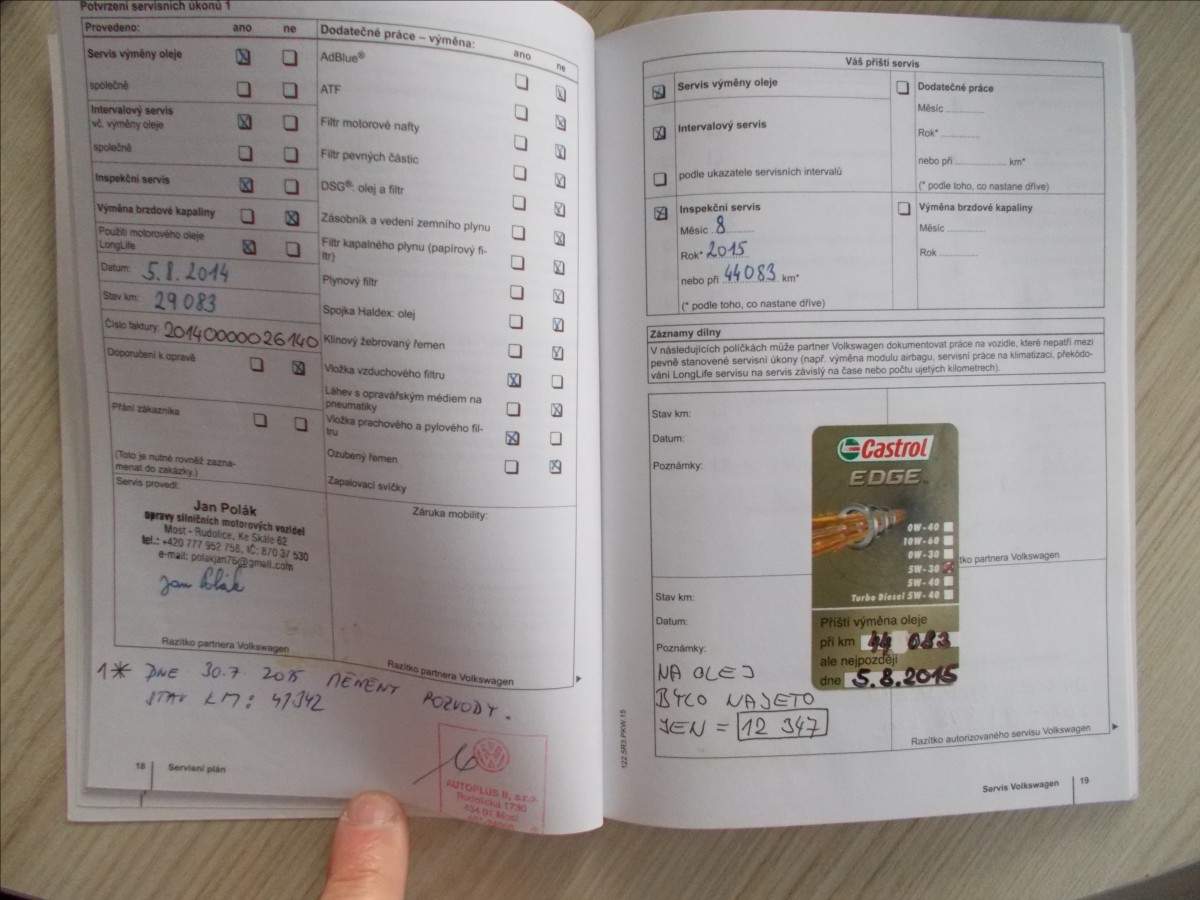 Potvrzení servisních úkonů 1
Provedeno: ano ne
Servis výměny oleje
společně
Intervalový servis
vč. výměny oleje
společně
Inspekční servis
Výměna brzdové kapaliny
Použití motorového oleje
LongLife
Datum: 5.8.2014
Stav km: 29 083
Číslo faktury: 20140000026140
Doporučení k opravě
Přání zákazníka
(Toto je nutné rovněž zazna-
menat do zakázky.)
Servis provedl:
Jan Polák
opravy silničních motorových vozidel
Most - Rudolice, Ke Skále 62
tel.: +420 777 952 758, IČ: 870 37 530
e-mail: polakjan76@gmail.com
Jan Polák
Razítko partnera Volkswagen
Dodatečné práce – výměna: ano ne
AdBlue®
ATF
Filtr motorové nafty
Filtr pevných částic
DSG®: olej a filtr
Zásobník a vedení zemního plynu
Filtr kapalného plynu (papírový fi-
ltr)
Plynový filtr
Spojka Haldex: olej
Klínový žebrovaný řemen
Vložka vzduchového filtru
Láhev s opravářským médiem na
pneumatiky
Vložka prachového a pylového fil-
tru
Ozubený řemen
Zapalovací svíčky
Záruka mobility:
Razítko partnera Volkswagen
1* DNE 30.7 2015 MĚNĚNY ROZVODY.
STAV KM: 41342
AUTOPLUS B, s.r.o.
Rudolická 1730
434 01 Most
18 Servisní plán
Váš příští servis
Servis výměny oleje
Intervalový servis
podle ukazatele servisních intervalů
Inspekční servis
Měsíc 8
Rok* 2015
nebo při 44083 km*
(* podle toho, co nastane dříve)
Dodatečné práce
Měsíc
Rok*
nebo při km*
(* podle toho, co nastane dříve)
Výměna brzdové kapaliny
Měsíc
Rok
Záznamy dílny
V následujících políčkách může partner Volkswagen dokumentovat práce na vozidle, které nepatří mezi
pevně stanovené servisní úkony (např. výměna modulu airbagu, servisní práce na klimatizaci, překódo-
vání LongLife servisu na servis závislý na čase nebo počtu ujetých kilometrech).
Stav km:
Datum:
Poznámky:
Castrol
EDGE
0W-40
10W-60
0W-30
5W-30
5W-40
Turbo Diesel 5W-40
Příští výměna oleje
při km 44 083
ale nejpozději
dne 5.8.2015
tko partnera Volkswagen
Stav km:
Datum:
Poznámky:
NA OLEJ
BYLO NAJETO
JEN = 12 347
Razítko autorizovaného servisu Volkswagen
122.5R3.PKW.15
Servis Volkswagen 19